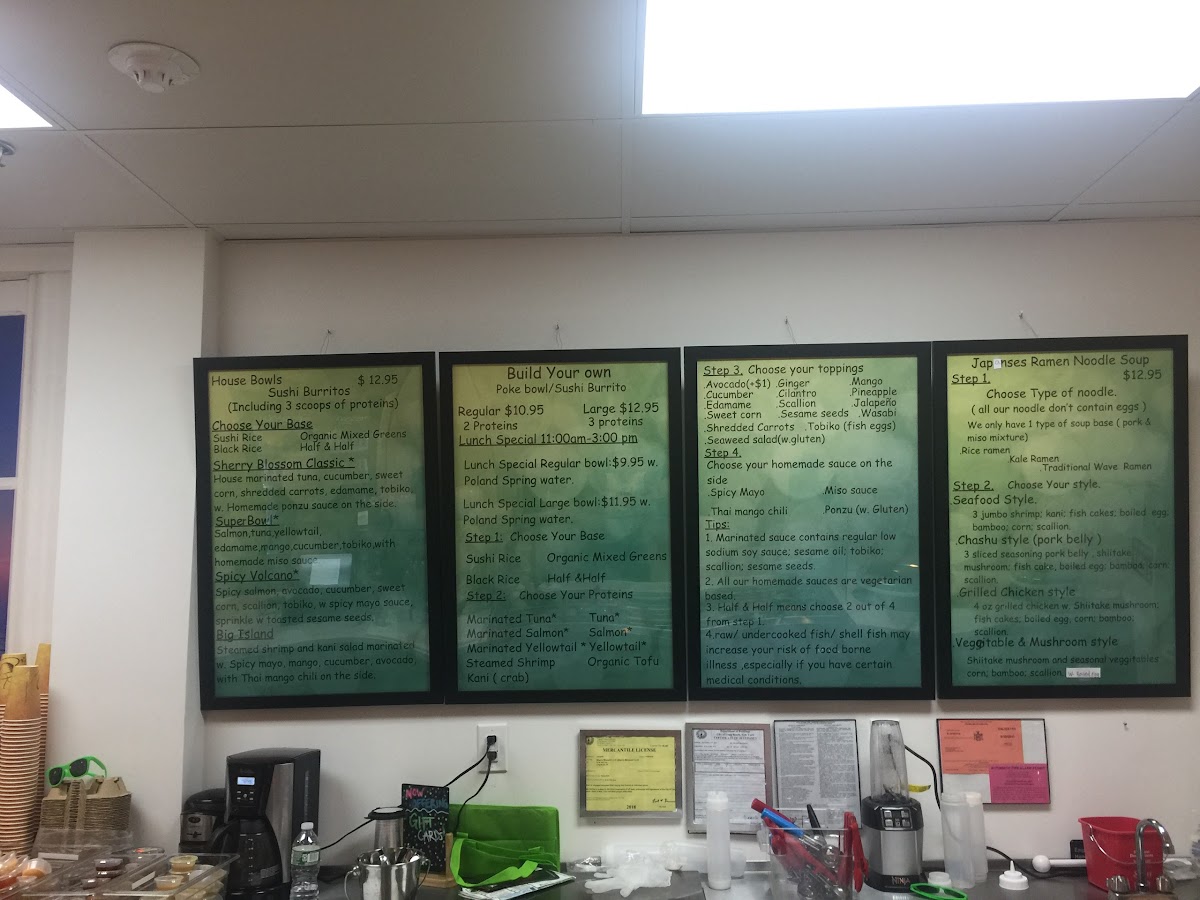 House Bowls $ 12.95
Sushi Burritos
(Including 3 scoops of proteins)
Choose Your Base
Sushi Rice Organic Mixed Greens
Black Rice Half & Half
Sherry Blossom Classic *
House marinated tuna, cucumber, sweet
corn, shredded carrots, edamame, tobiko,
w. Homemade ponzu sauce on the side.
SuperBowl*
Salmon,tuna,yellowtail,
edamame,mango,cucumber,tobiko,with
homemade miso sauce
Spicy Volcano*
Spicy salmon, avocado, cucumber, sweet
corn, scallion, tobiko, w spicy mayo sauce,
sprinkle w toasted sesame seeds.
Big Island
Steamed shrimp and kani salad marinated
w. Spicy mayo, mango, cucumber, avocado,
with Thai mango chili on the side.
Build Your own
Poke bowl/Sushi Burrito
Regular $10.95 Large $12.95
2 Proteins 3 proteins
Lunch Special 11:00am-3:00 pm
Lunch Special Regular bowl:$9.95 w.
Poland Spring water.
Lunch Special Large bowl:$11.95 w.
Poland Spring water.
Step 1: Choose Your Base
Sushi Rice Organic Mixed Greens
Black Rice Half &Half
Step 2: Choose Your Proteins
Marinated Tuna* Tuna*
Marinated Salmon* Salmon*
Marinated Yellowtail * Yellowtail*
Steamed Shrimp Organic Tofu
Kani ( crab)
Step 3. Choose your toppings
.Avocado(+$1) .Ginger .Mango
.Cucumber .Cilantro .Pineapple
.Edamame .Scallion .Jalapeño
.Sweet corn .Sesame seeds .Wasabi
.Shredded Carrots .Tobiko (fish eggs)
.Seaweed salad(w.gluten)
Step 4.
Choose your homemade sauce on the
side
.Spicy Mayo .Miso sauce
.Thai mango chili .Ponzu (w. Gluten)
Tips:
1. Marinated sauce contains regular low
sodium soy sauce; sesame oil; tobiko;
scallion; sesame seeds.
2. All our homemade sauces are vegetarian
based.
3. Half & Half means choose 2 out of 4
from step 1.
4.raw/ undercooked fish/ shell fish may
increase your risk of food borne
illness ,especially if you have certain
medical conditions.
Japanses Ramen Noodle Soup
Step 1. $12.95
Choose Type of noodle.
( all our noodle don't contain eggs )
We only have 1 type of soup base ( pork &
miso mixture)
.Rice ramen
.Kale Ramen
.Traditional Wave Ramen
Step 2. Choose Your style.
Seafood Style.
3 jumbo shrimp; kani; fish cakes; boiled egg;
bamboo; corn; scallion.
.Chashu style (pork belly )
3 sliced seasoning pork belly , shiitake
mushroom; fish cake, boiled egg; bamboo; corn;
scallion.
Grilled Chicken style
4 oz grilled chicken w. Shiitake mushroom;
fish cakes, boiled egg, corn; bamboo;
scallion.
.Veggitable & Mushroom style
Shiitake mushroom and seasonal veggitables
corn; bamboo; scallion.
NOW
OFFERING
GIFT
CARDS
MERCANTILE LICENSE
2018
NINJA